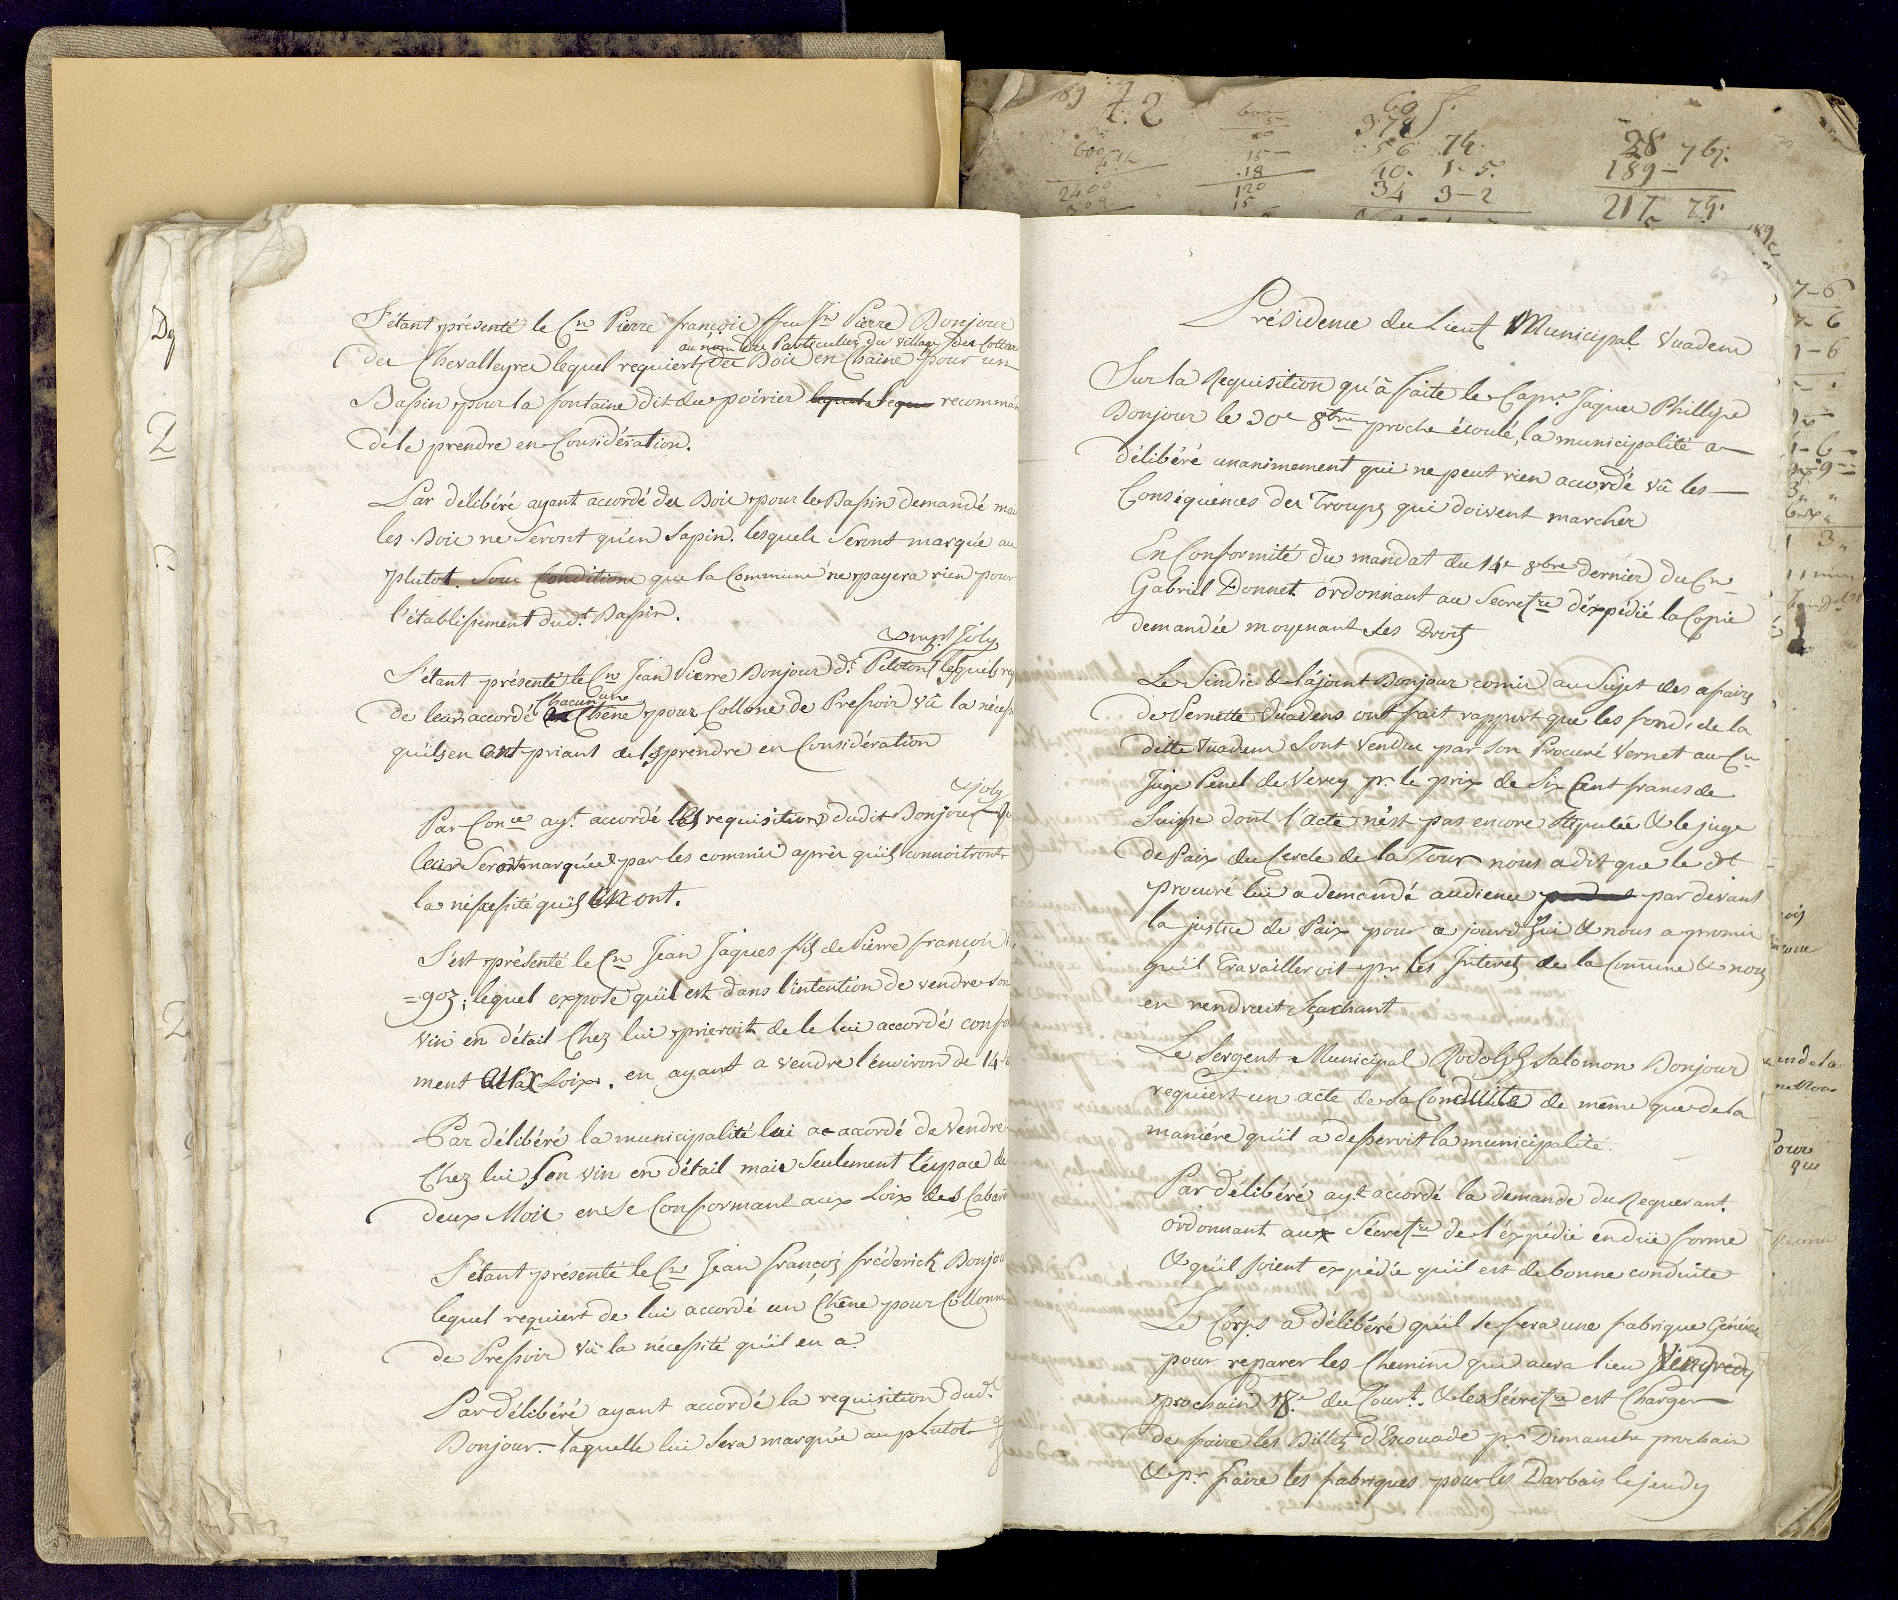 S'étant présenté le Cn Pierre françois ffeu Jn Pierre Bonjour
au nom des Particulier du village des Cottter
des Chevalleyres lequel requiert des Bois en Chaine pour un
Bassin pour la fontaine dit du poérier recomman
de le prendre en Considération.
Par délibéré ayant accordé des Bois pour les Bassin demandé mais
les Bois ne seront qu'en Sapin. lesquels seront marqué au
plutot. Sous Conditions que la Commune ne payera rien pour
l'établissement dudt. Bassin.
Joly
S'étant présenté le Cn Jean Pierre Bonjour dt. Peloton lesquels req
Chacun un
de leur accordé Chêne pour Collone de Pressoir vû la nécess
qu'ils en ont priant de les prendre en Considération
& joly
Par Conce ayt. accordé les requisitions dudit Bonjour
leurs seront marquées par les commis après qu'ils connoitront
la nésessité qu'ils en ont.
S'est présenté le Cn Jean Jaques fils de Pierre françois
=goz; lequel expose qu'il est dans l'intention de vendre son
vin en détail Chez lui prieroit de le lui accordé confor
ment aux Loix. en ayant a vendre l'environ de 14
Par délibéré la municipalité lui a accordé de vendre
Chez lui son vin en détail mais seulement l'éspace de
deux Mois en se Conformant aux Loix des Cabare
S'étant présenté le Cn Jean françois fréderick Bonjou
lequel requiert de lui accordé un Chêne pour Collonne
de Pressoir vû la nécessité qu'il en a
Par délibéré ayant accordé la requisition dudt.
Bonjour. laquelle lui sera marquée au plutot
Présidence du Lieut Municipal Vuadens
Sur la Requisition qu'à faite le Capn. Jaques Phillipe
Bonjour le 30e 8bre proche écoulé, la municipalité a
délibéré unanimement qui ne peut rien accordé vû les
Conséquences des Troupes qui doivent marcher
En Conformité du mandat du 14e 8bre dernier du Cn
Gabriel Donnet ordonnant au Secretre d'éxpédié la Copie
demandée moyenant ses Droits
Le Sindic & l'ajoint Bonjour comis au Sujet des afaires
de Pernette Vuadens ont fait rapport que les fonds de la
ditte Vuadens sont vendus par son Procuré Vernet au Cn
Juge Penel de Vevey pr. le prix de Six Cent francs de
Suisse dont l'acte n'est pas encore stipulée & le juge
de Paix du Cercle de la Tour nous a dit que le dt
procuré lui a demandé audience par devant
la justice de Paix pour a jourd'hui & nous a promis
qu'il Travailleroit pr. les Interets de la Comune & nous
en rendroit Scachant
Le Sergent Municipal Rodolph Salomon Bonjour
requiert un acte de sa Conduite de même que de la
maniére qu'il a desservit la municipalité.
Par délibéré ayt accordé la demande du Requerant.
ordonnant aux Sécretre de l'éxpédié en düe forme
& qu'il soient expédie qu'il est de bonne conduite
Le Corps a délibéré qu'il se fera une fabrique Générale
pour reparer les Chemins qui aura lieu Vendredy
prochain 18e du Court. & les Sécretre est Charger
de faire les Billets d'Escouade pr. Dimanche prochain
& pr. faire les fabriques pour les Darbais le jeudy